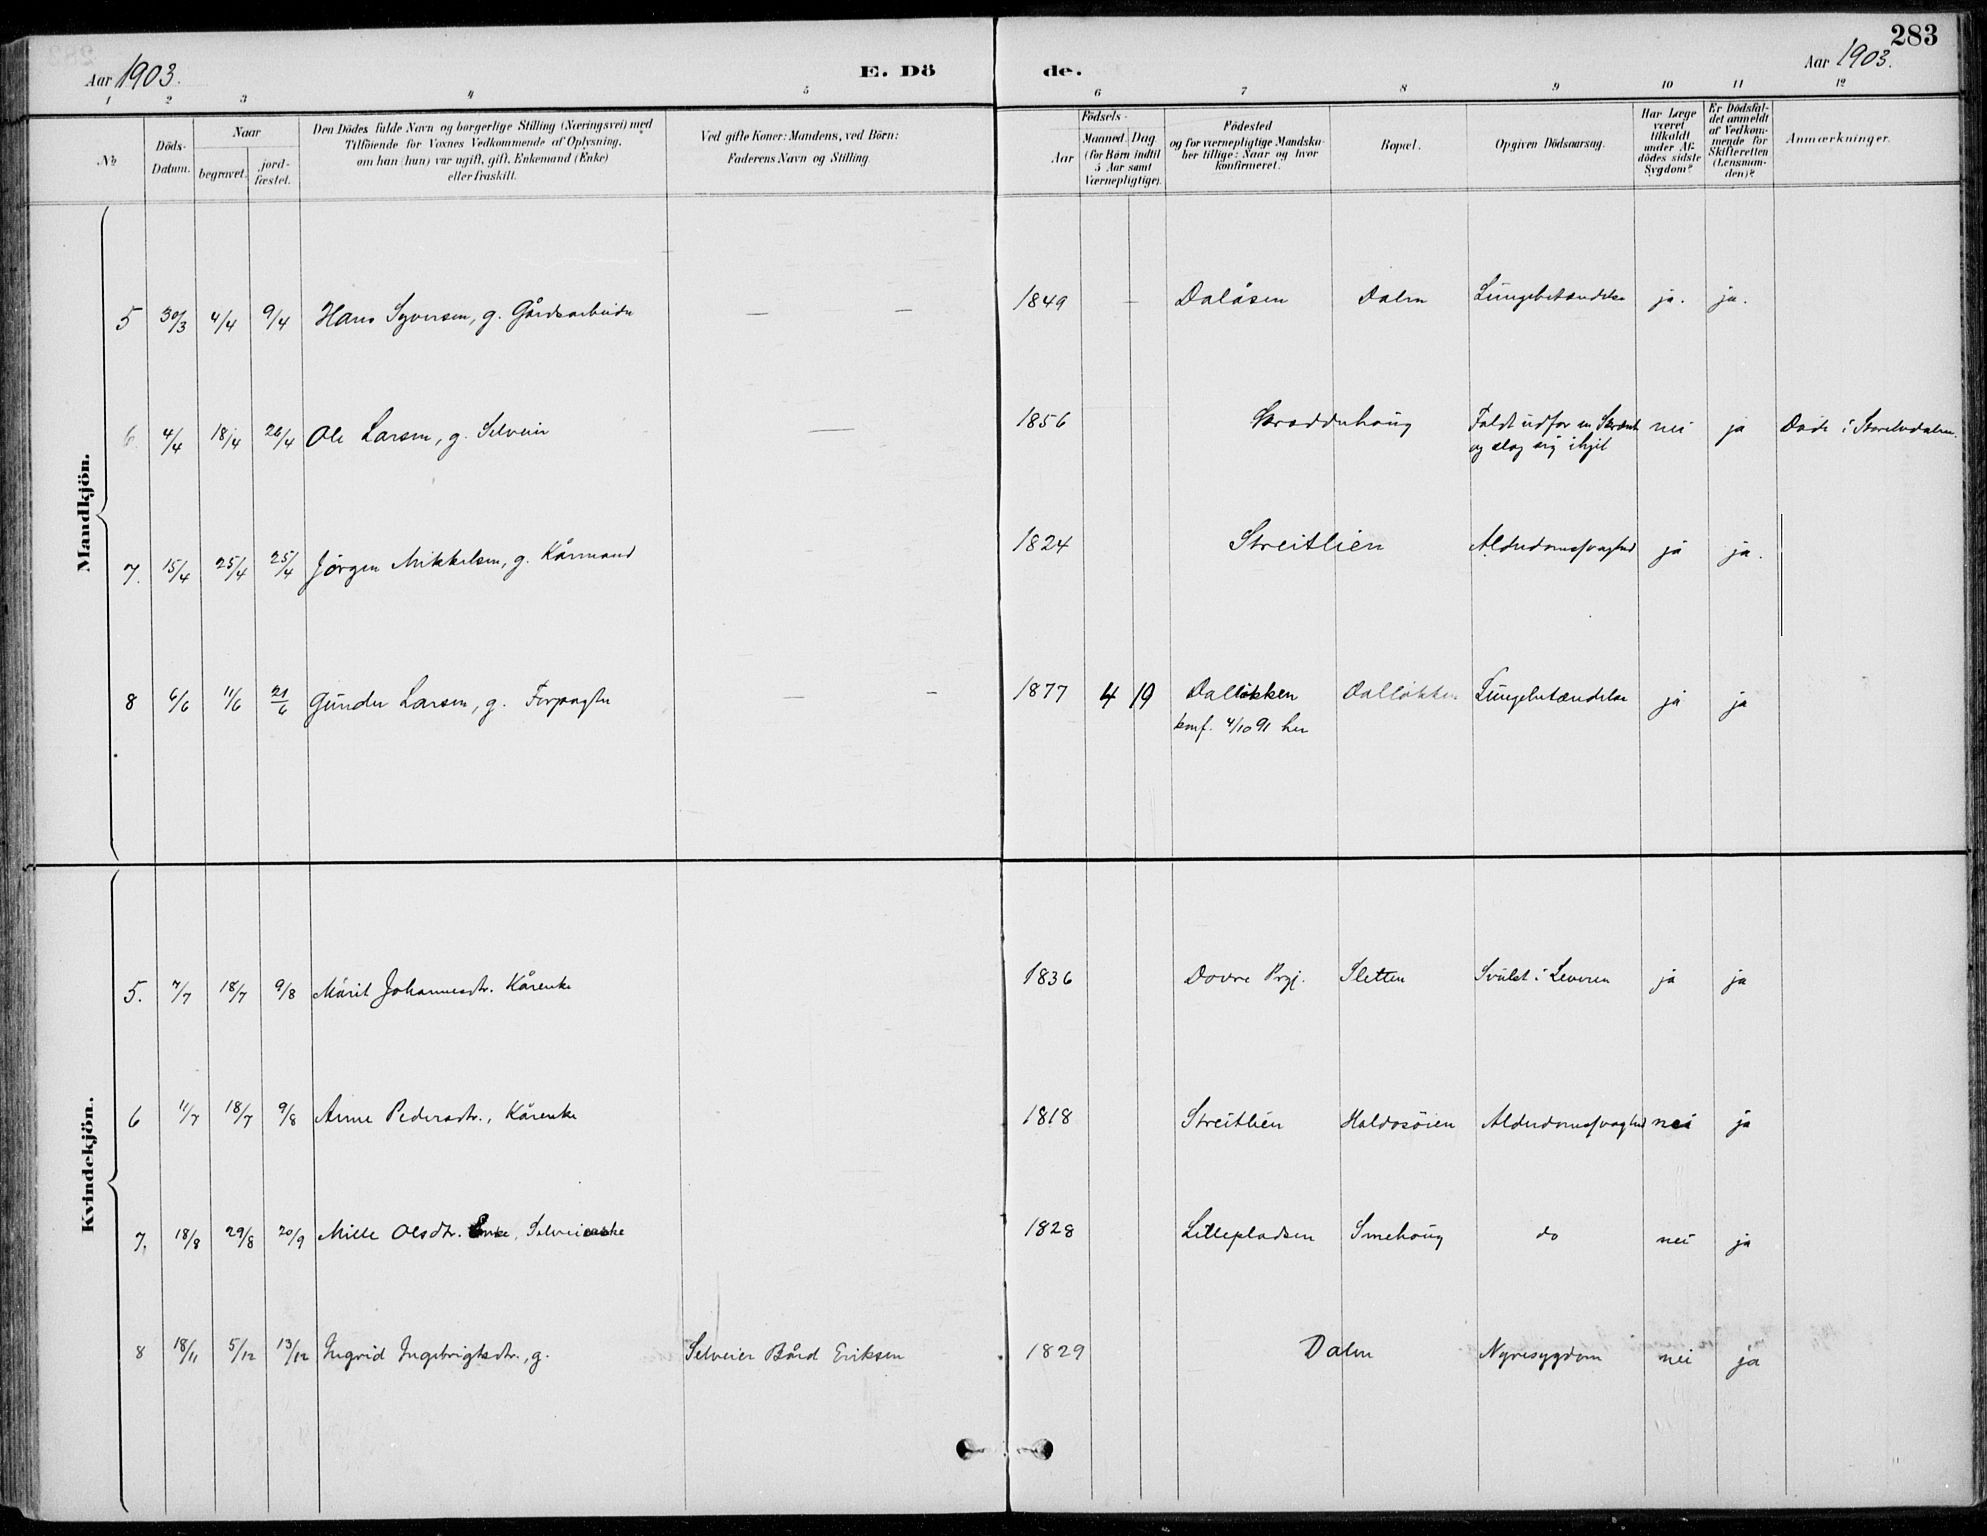 283
Aar 1903.
E. Dö
de.
Aar 1903.
1 2 3 4 5 6 7 8 9 10 11 12
No
Döds-
Datum.
Naar
begravet.
jord-
fæstet.
Den Dödes fulde Navn og borgerlige Stilling (Næringsvei) med
Tilföiende for Voxnes Vedkommende af Oplysning,
om han (hun) var ugift, gift, Enkemand (Enke)
eller fraskilt.
Ved gifte Koner: Mandens, ved Börn:
Faderens Navn og Stilling.
Födsels-
Aar
Maaned. Dag
(for Børn indtil
5 Aar samt
Værnepligtige).
Födested
og for værnepligtige Mandsku-
ber tillige: Naar og hvor
konfirmeret.
Bopæl.
Opgiven Dödsaarsag.
Har Læge
været
tilkaldt
under Af-
dödes sidste
Sygdom?
Er Dödsfal-
det anmeldt
af Vedkom-
mende for
Skifteretten
(Lensman-
den)?
Anmærkninger.
Mandkjön.
5 30/3 4/4 9/4 Hans Syversen, g. Gårdsarbeider — — 1849 — Dalåsen Dalen Lungebetændelse ja. ja.
6. 4/4 18/4 26/4 Ole Larsen, g. Selveier — — 1856 Skradderhaug Faldt udfor en Skrænt nei ja Døde i
og slog sig ihjel
7. 15/4 25/4 25/4 Jørgen Mikkelsen, g. Kårmand 1824 Streitlien Alderdomssvaghed ja ja.
8 6/6 11/6 21/6 Gunder Larsen, g. Forpagter — — 1877 4 19 Dalløkken Dalløkken Lungebetændelse ja ja
konf. 4/10 91 her
Kvindekjön.
5. 7/7 18/7 9/8 Márit Johannesdtr. Kårenke 1836 Dovre Prgj. Sletten Svulst i Leveren ja ja
6 11/7 18/7 9/8 Anne Pedersdtr., Kårenke 1818 Streitlien Haldosøien Alderdomssvaghed nei ja
7. 18/8 29/8 20/9 Mille Olsdtr. Enke, Selveierenke 1828 Lillepladsen Smehaug do nei ja
8 18/11 5/12 13/12 Ingrid Ingebrigtsdtr., g. Selveier Bård Eriksen 1829 Dalen Nyresygdom nei ja